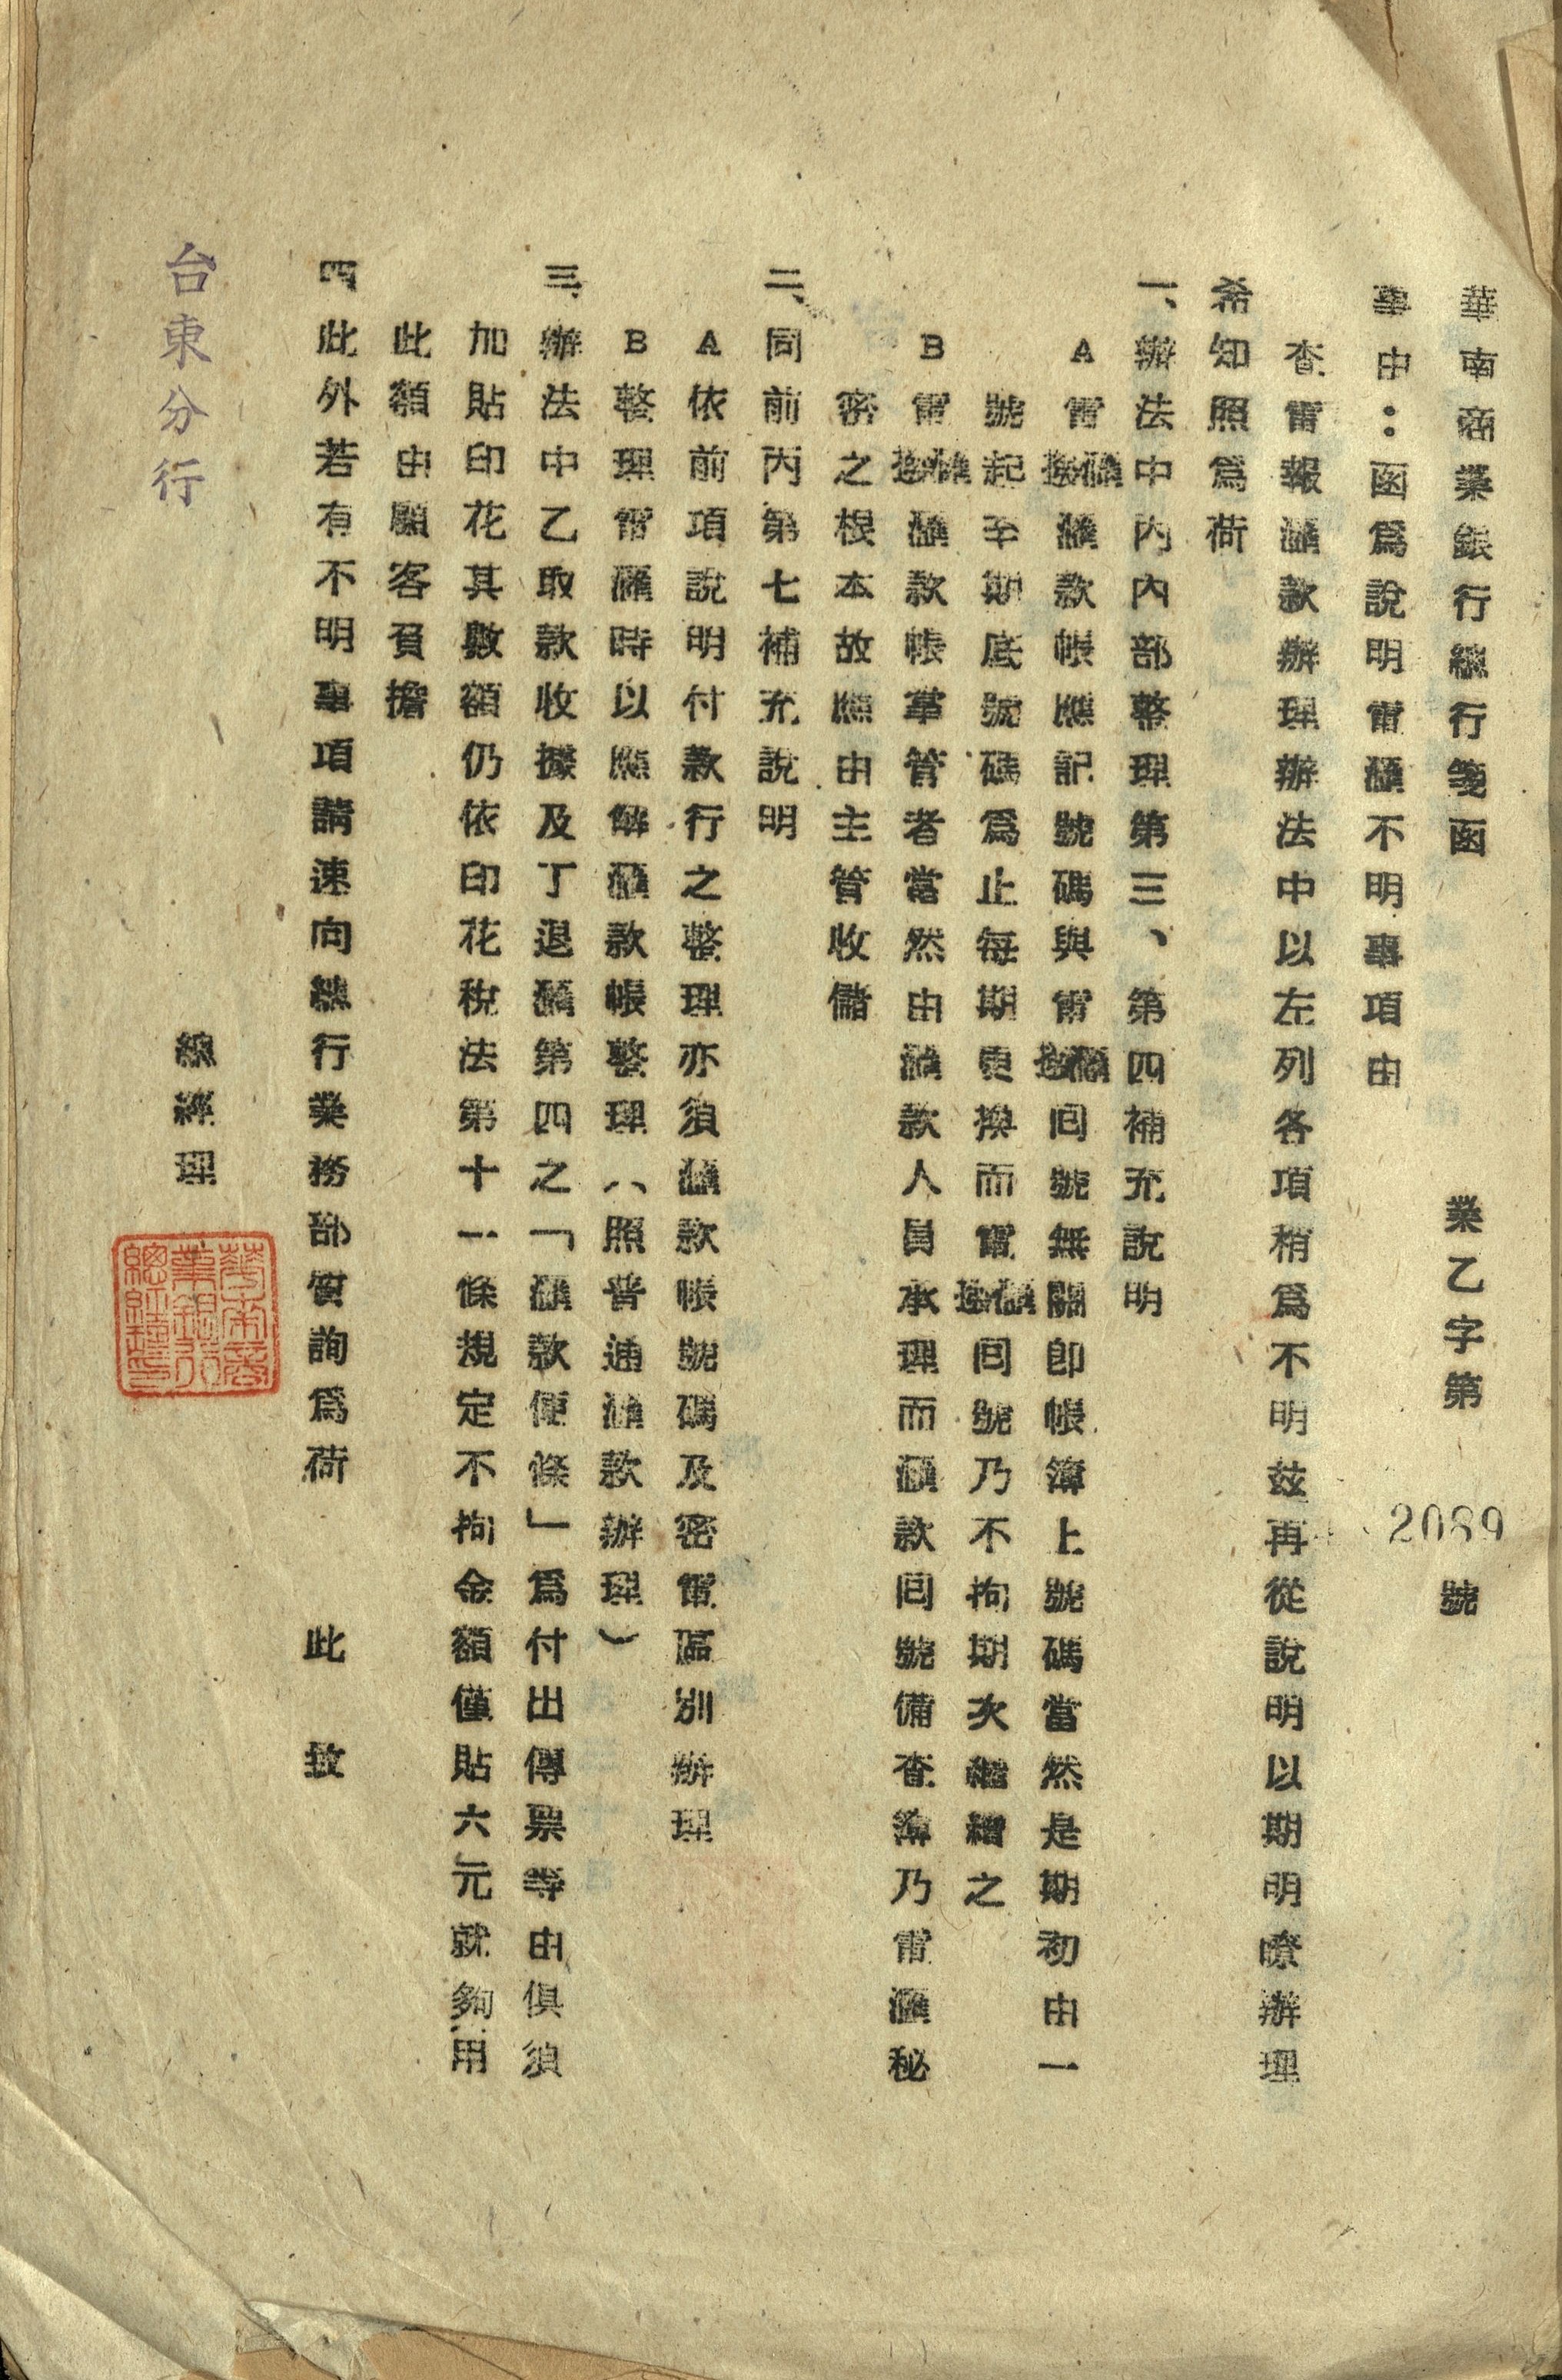 華南商業銀行總行箋函
業乙字第 2089 號
事由：函爲說明電滙不明事項由
查電報滙款辦理辦法中以左列各項稍爲不明茲再從說明以期明瞭辦理
希知照爲荷
一、辦法中丙內部整理第三、第四補充說明
A 電滙款帳應記號碼與電回號無關卽帳簿上號碼當然是期初由一
號起至期底號碼爲止每期更換而電回號乃不拘期次繼續之
B 電滙款帳掌管者當然由滙款人員承理而滙款回號備查簿乃電滙秘
密之根本故應由主管收儲
二、同前丙第七補充說明
A 依前項說明付款行之整理亦須滙款帳號碼及密電區別辦理
B 整理電滙時以應解滙款帳整理（照普通滙款辦理）
三、辦法中乙取款收據及丁退滙第四之「滙款便條」爲付出傳票等由俱須
加貼印花其數額仍依印花稅法第十一條規定不拘金額僅貼六元就夠用
此額由顧客負擔
四、此外若有不明事項請速向總行業務部質詢爲荷 此 致
總經理
華南商業銀行總經理印
台東分行